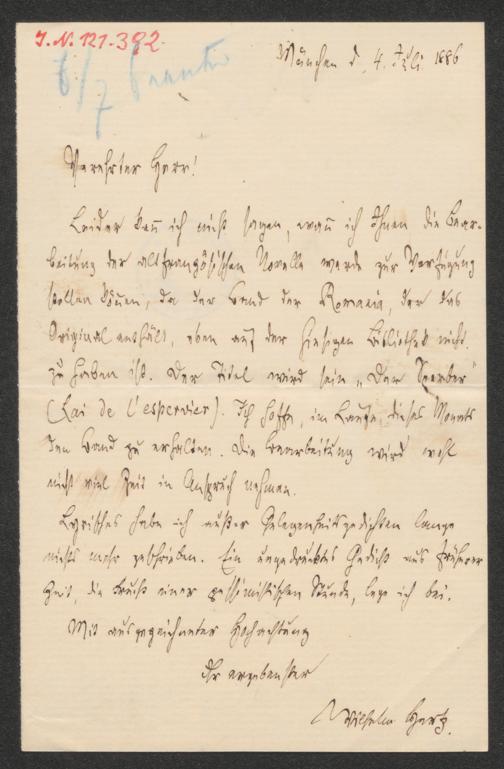 J.N. 121.392.
6/7
München d. 4. Juli 1886
Verehrter Herr!
Leider kan̄ ich nicht sagen, wan̄ ich Ihnen die Bear-
beitung der altfranzösischen Novelle werde zur Verfügung
stellen kön̄en, da der Band der Romania, der das
Original enthält, eben auf der hiesigen Bibliothek nicht
zu haben ist. Der Titel wird sein „Der Sperber"
(Lai de l'espervier). Ich hoffe, im Laufe dieses Monats
den Band zu erhalten. Die Bearbeitung wird wohl
nicht viel Zeit in Anspruch nehmen.
Lyrisches habe ich außer Gelegenheitsgedichten lange
nichts mehr geschrieben. Ein ungedrucktes Gedicht aus früherer
Zeit, die Frucht einer pessimistischen Stunde, lege ich bei.
Mit ausgezeichneter Hochachtung
Ihr ergebenster
Wilhelm Hertz.